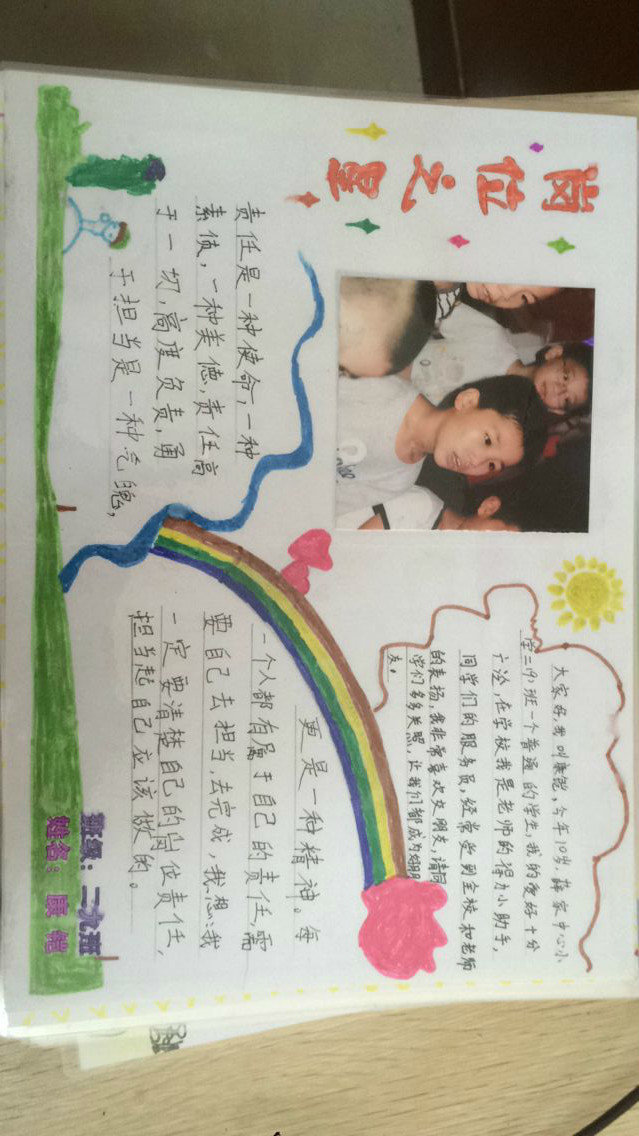 岗位之星
大家好,我叫康锴,今年10岁,薛家中心小
学二(9)班一个普通的学生,我的爱好十分
广泛,在学校我是老师的得力小助手,
同学们的服务员,经常受到全校和老师
的表扬,我非常喜欢交朋友,请同
学们多多关照,让我们都成为好朋
友。
责任是一种使命,一种
素质,一种美德,责任高
于一切,高度负责,勇
于担当是一种气魄,
更是一种精神。每
一个人都有属于自己的责任需
要自己去担当,去完成,我想:我
一定要清楚自己的岗位责任,
担当起自己应该做的。
班级:二九班
姓名:康锴